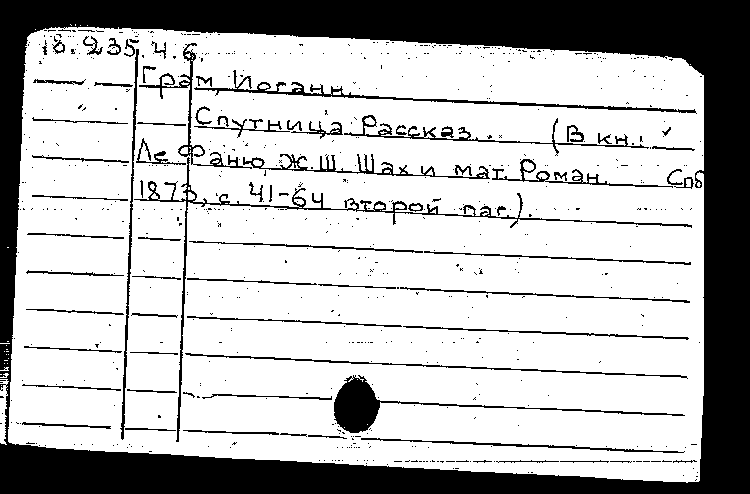 18.235.4.6.
Грам, Иоганн.
Спутница. Рассказ. . (В кн.:
Ле Фаню, Ж.Ш. Шах и мат. Роман. Спб
1873, с. 41-64 второй паг.).